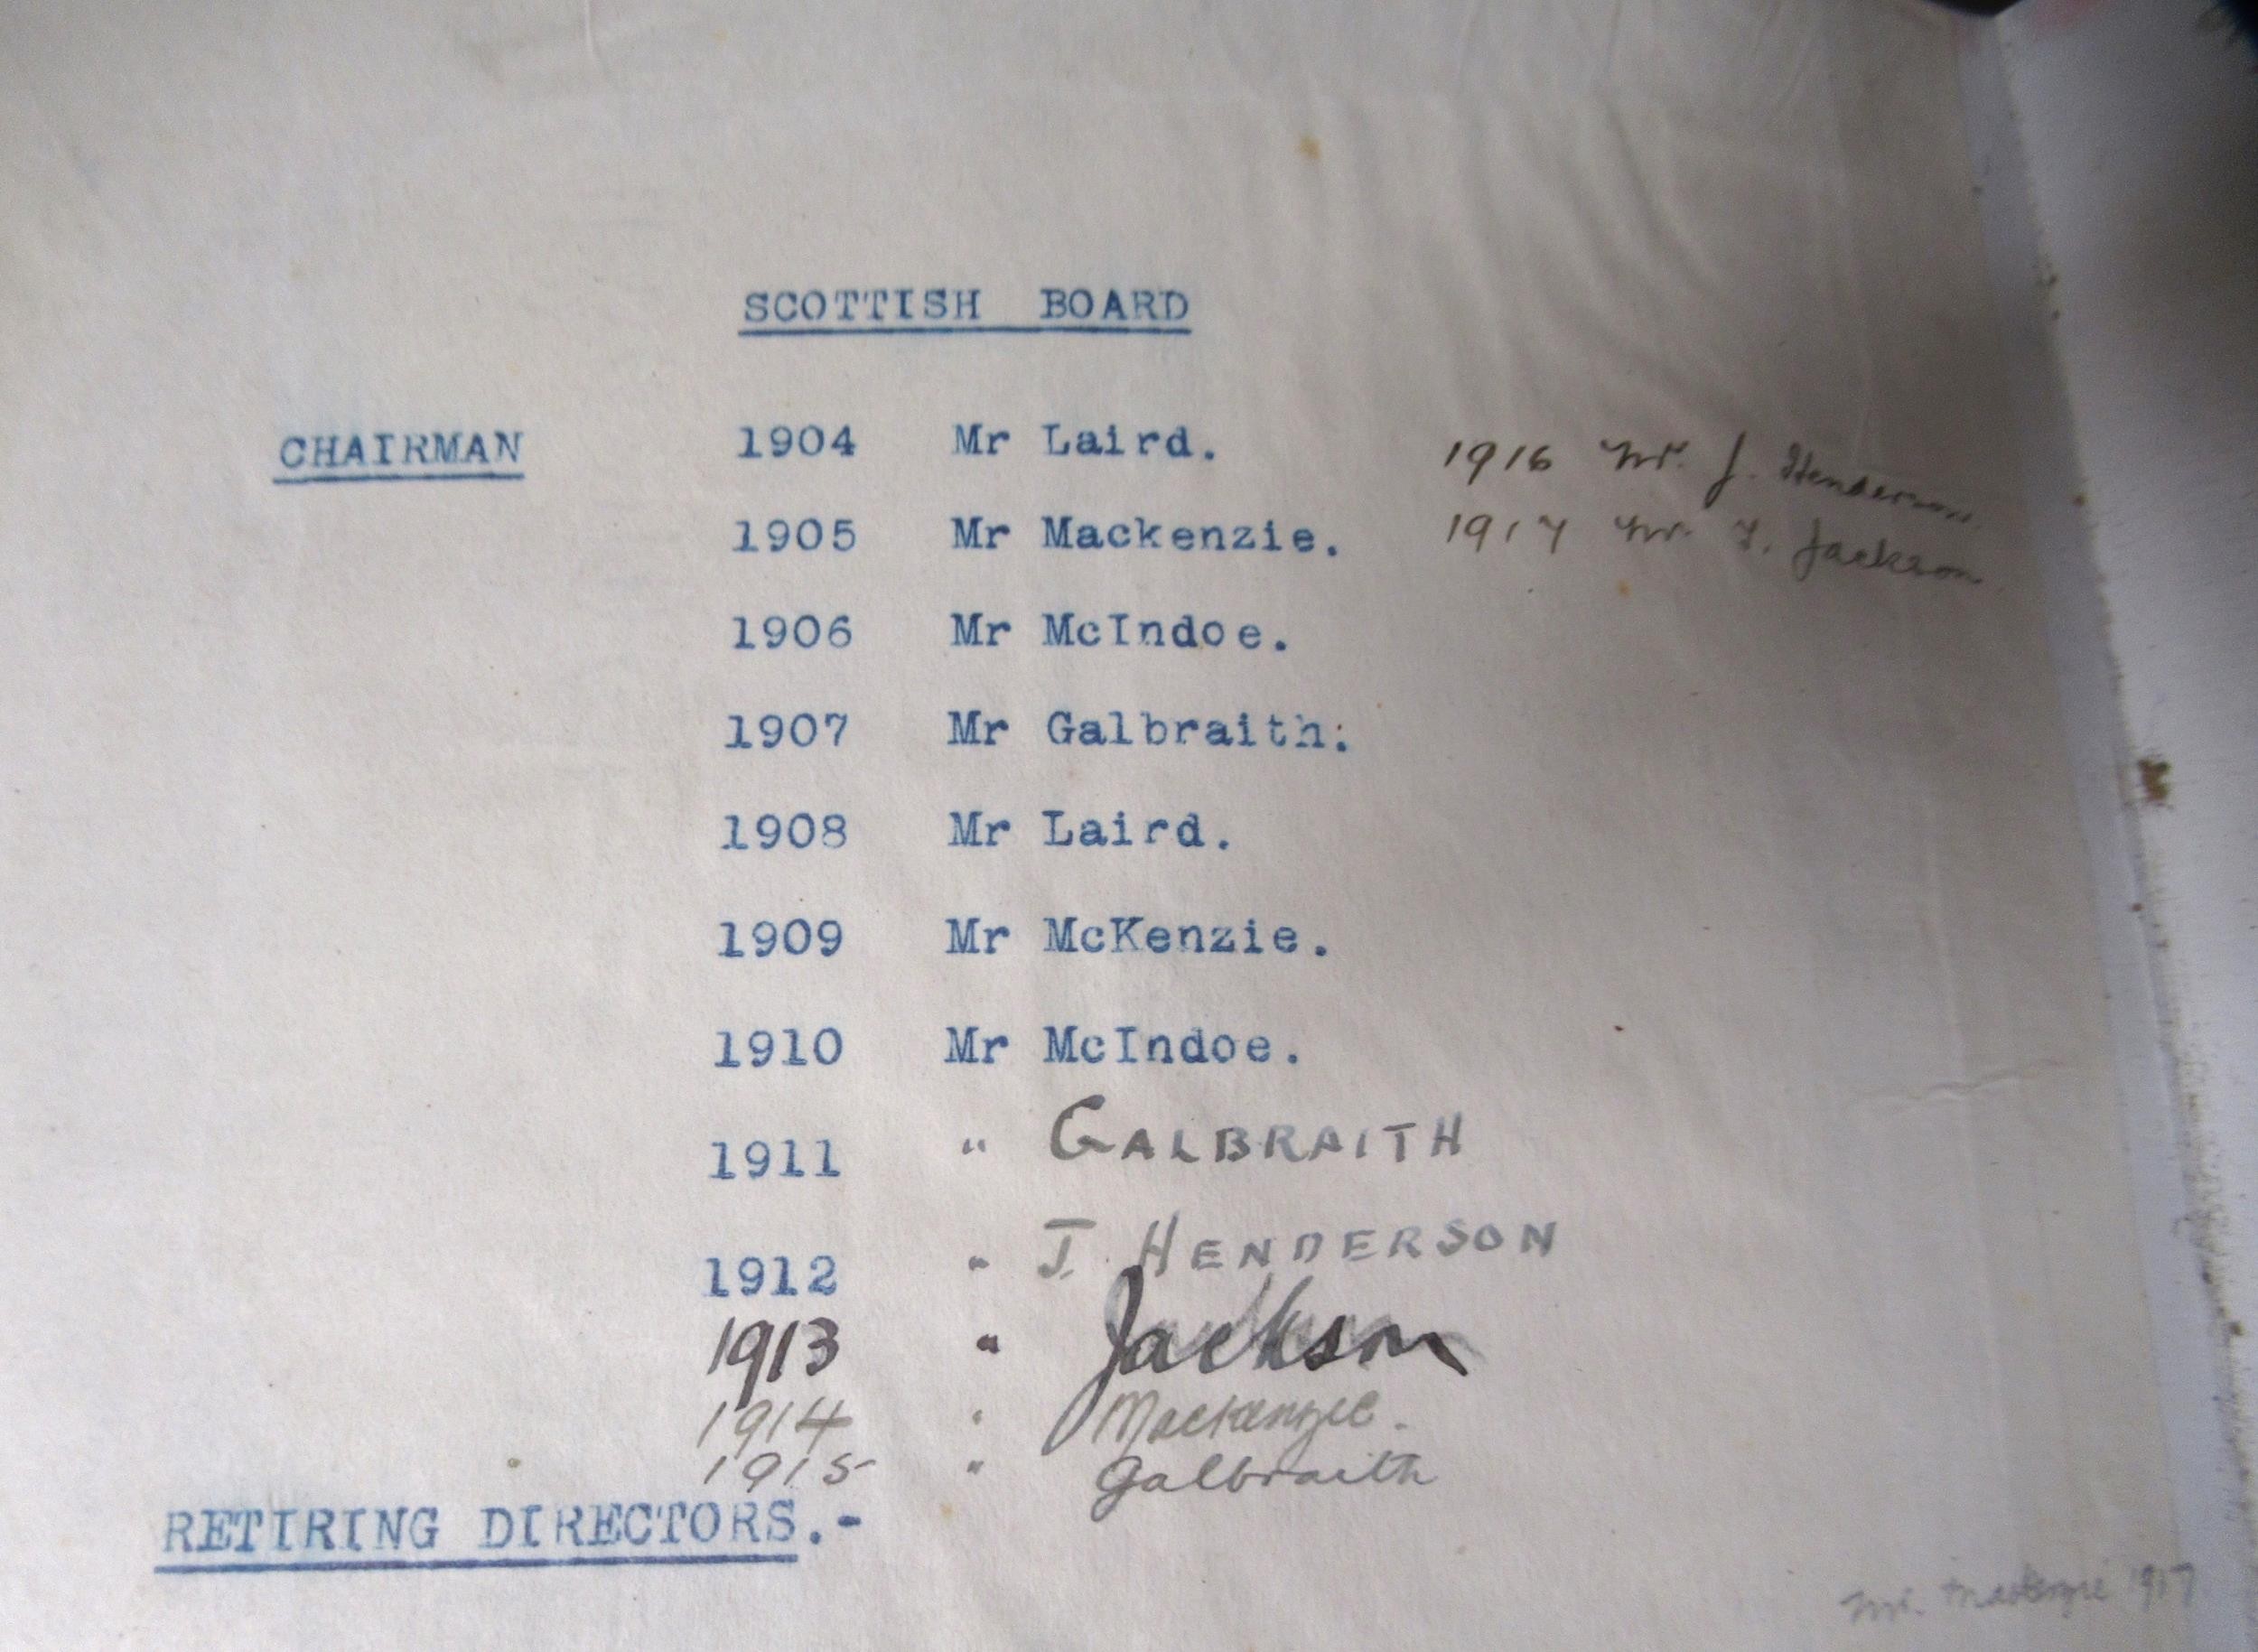 SCOTTISH BOARD
CHAIRMAN 1904 Mr Laird. 1916 Mr. J. Henderson
1905 Mr Mackenzie. 1917 Mr. F. Jackson
1906 Mr McIndoe.
1907 Mr Galbraith.
1908 Mr Laird.
1909 Mr McKenzie.
1910 Mr McIndoe.
1911 " GALBRAITH
1912 " J. HENDERSON
1913 " Jackson
1914 " Mackenzie.
1915 " Galbraith
RETIRING DIRECTORS.-
Mr. Mackenzie 1917